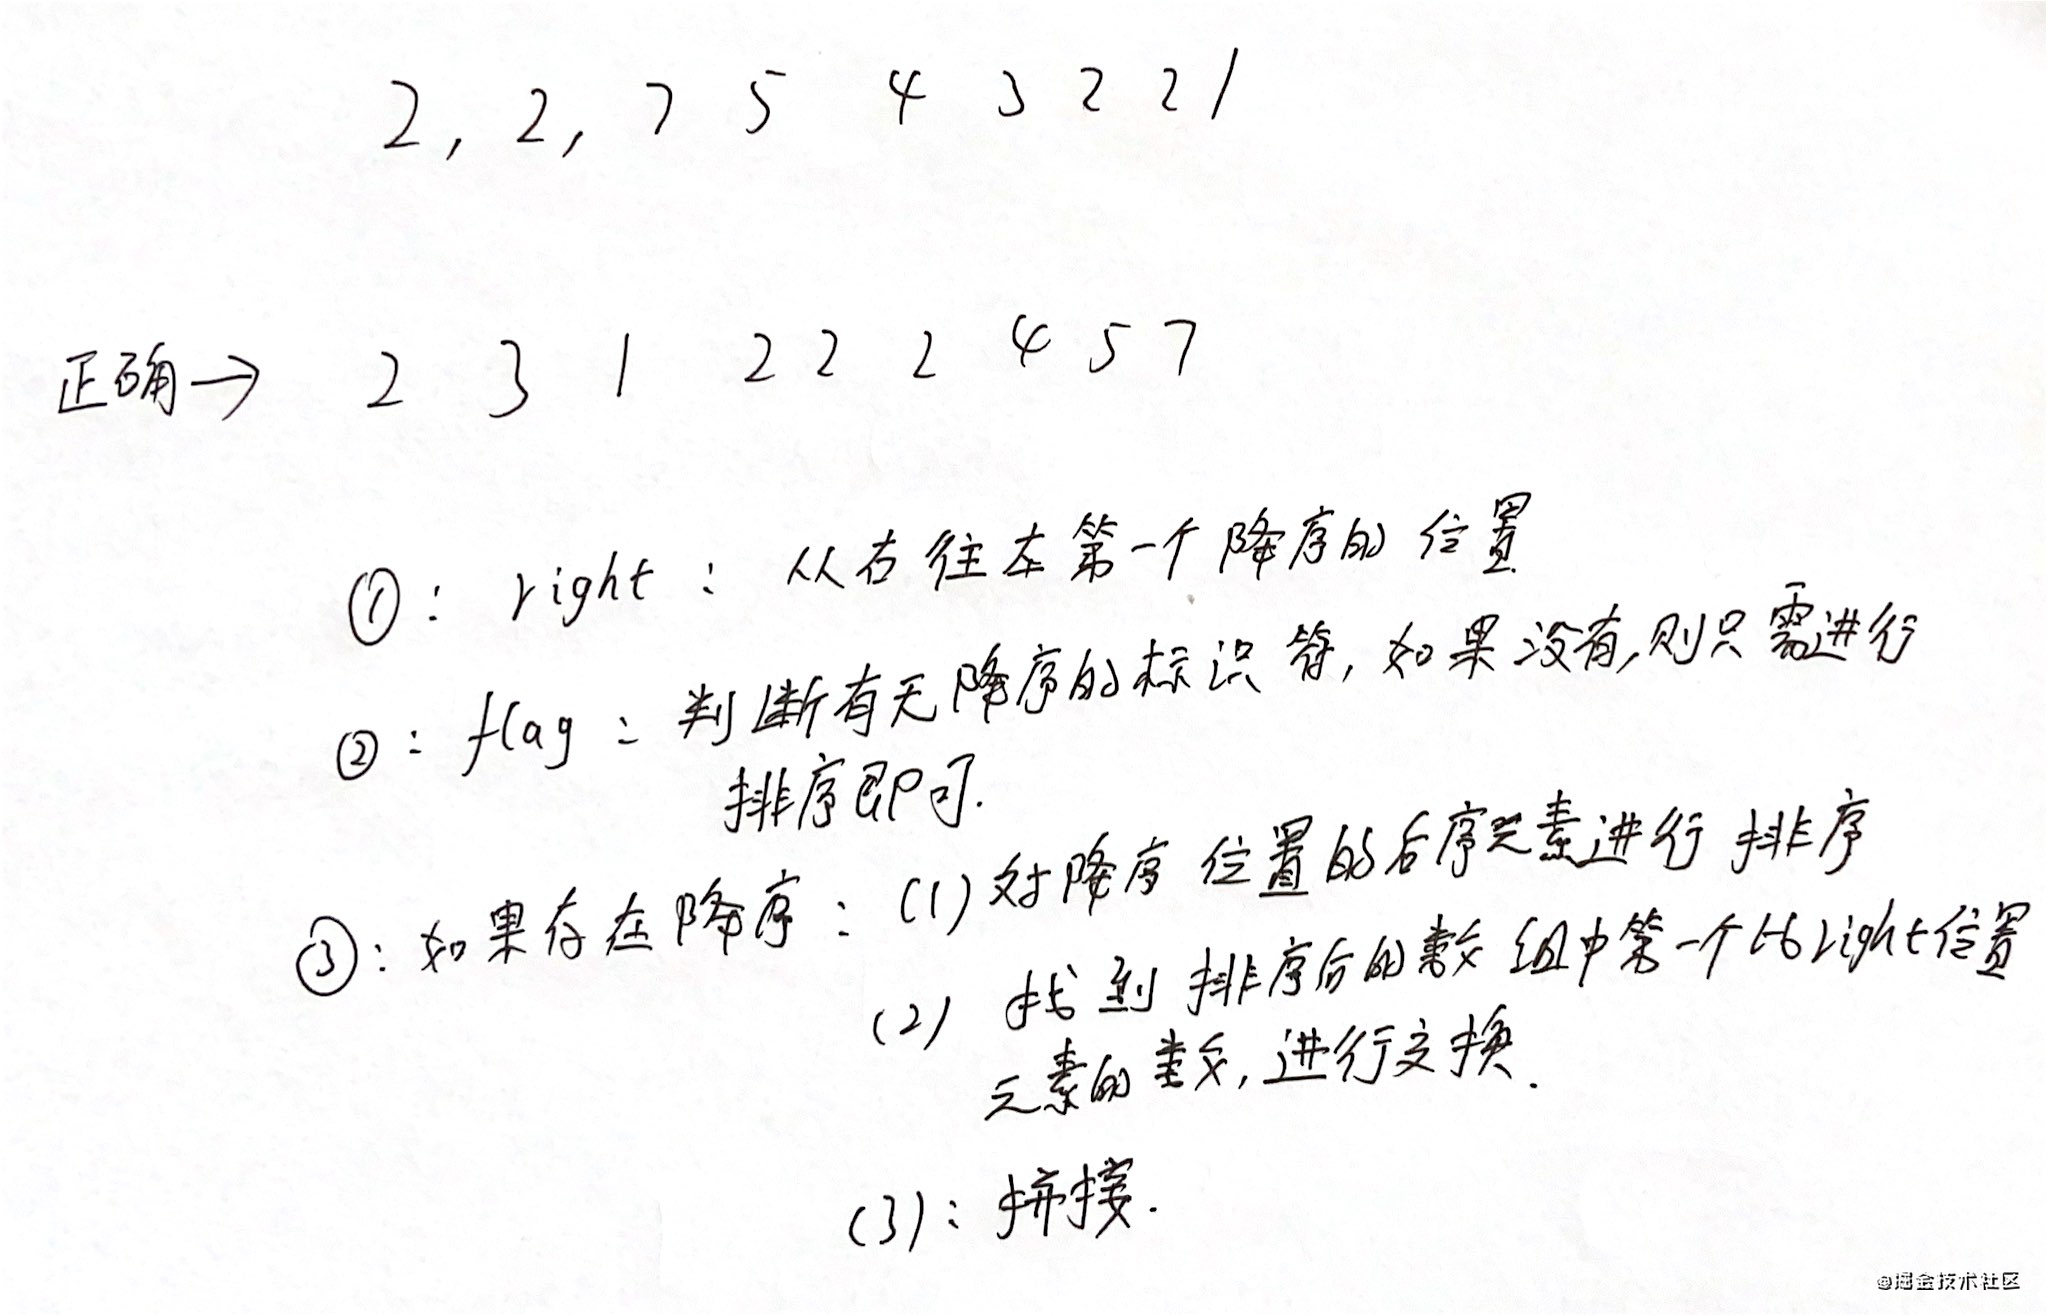 2, 2, 7 5 4 3 2 2 1
正确→ 2 3 1 2 2 2 4 5 7
①: right: 从右往左第一个降序的位置
②: flag: 判断有无降序的标识符,如果没有,则只需进行
排序即可.
③: 如果存在降序: (1) 对降序位置的后序元素进行排序
(2) 找到排序后的数组中第一个比right位置
元素的数,进行交换.
(3): 拼接.
@掘金技术社区